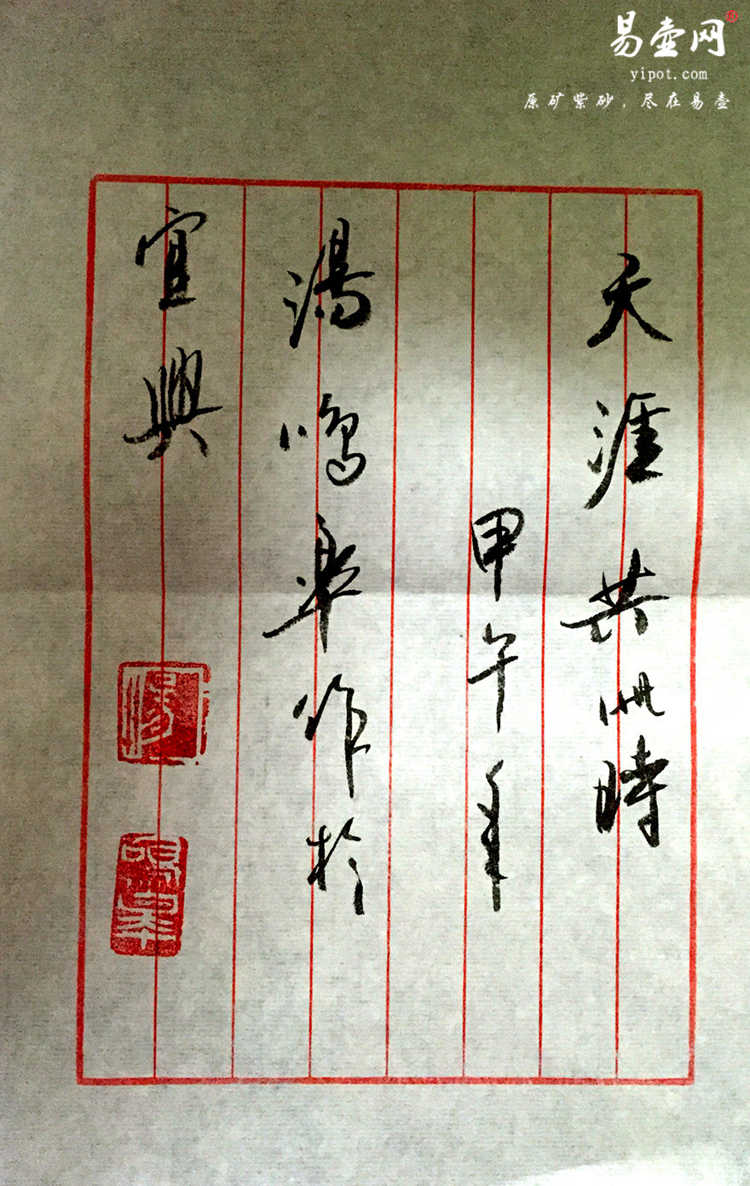 易壶网®
yipot.com
原矿紫砂，尽在易壶
天涯共此時
甲午年
湯鳴皋作於
宜興
湯
鳴皋